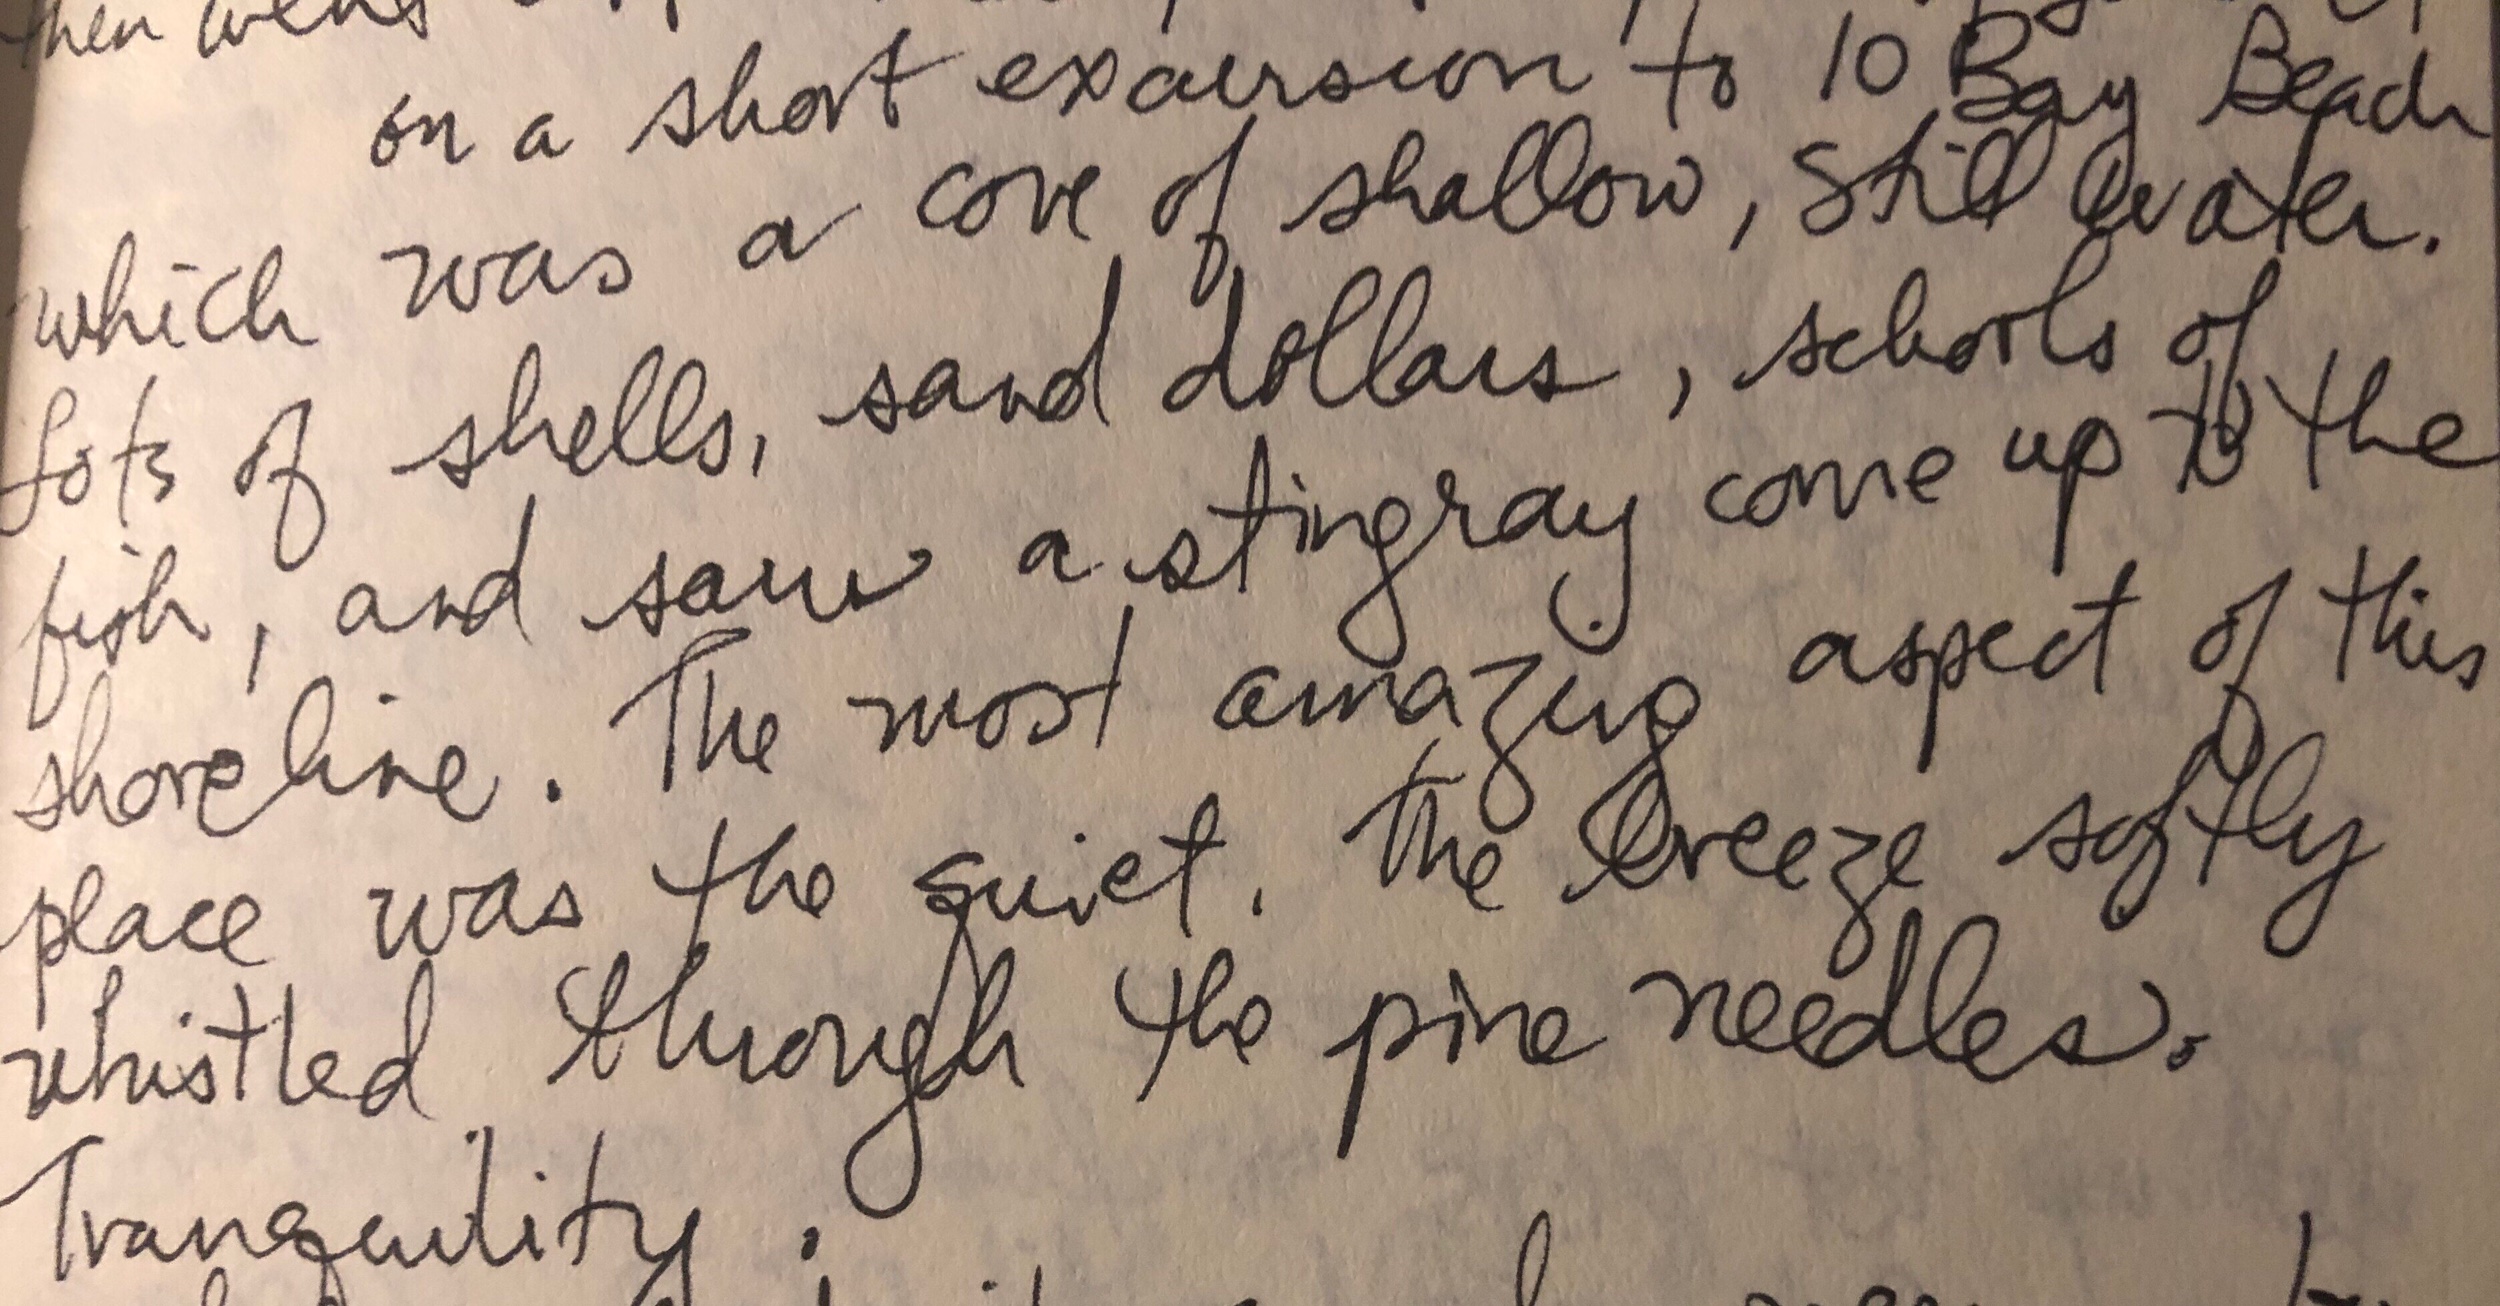 then went
on a short excursion to 10 Bay Beach
which was a cove of shallow, still water.
Lots of shells, sand dollars, schools of
fish, and saw a stingray come up to the
shoreline. The most amazing aspect of this
place was the quiet. The breeze softly
whistled through the pine needles.
Tranquility.